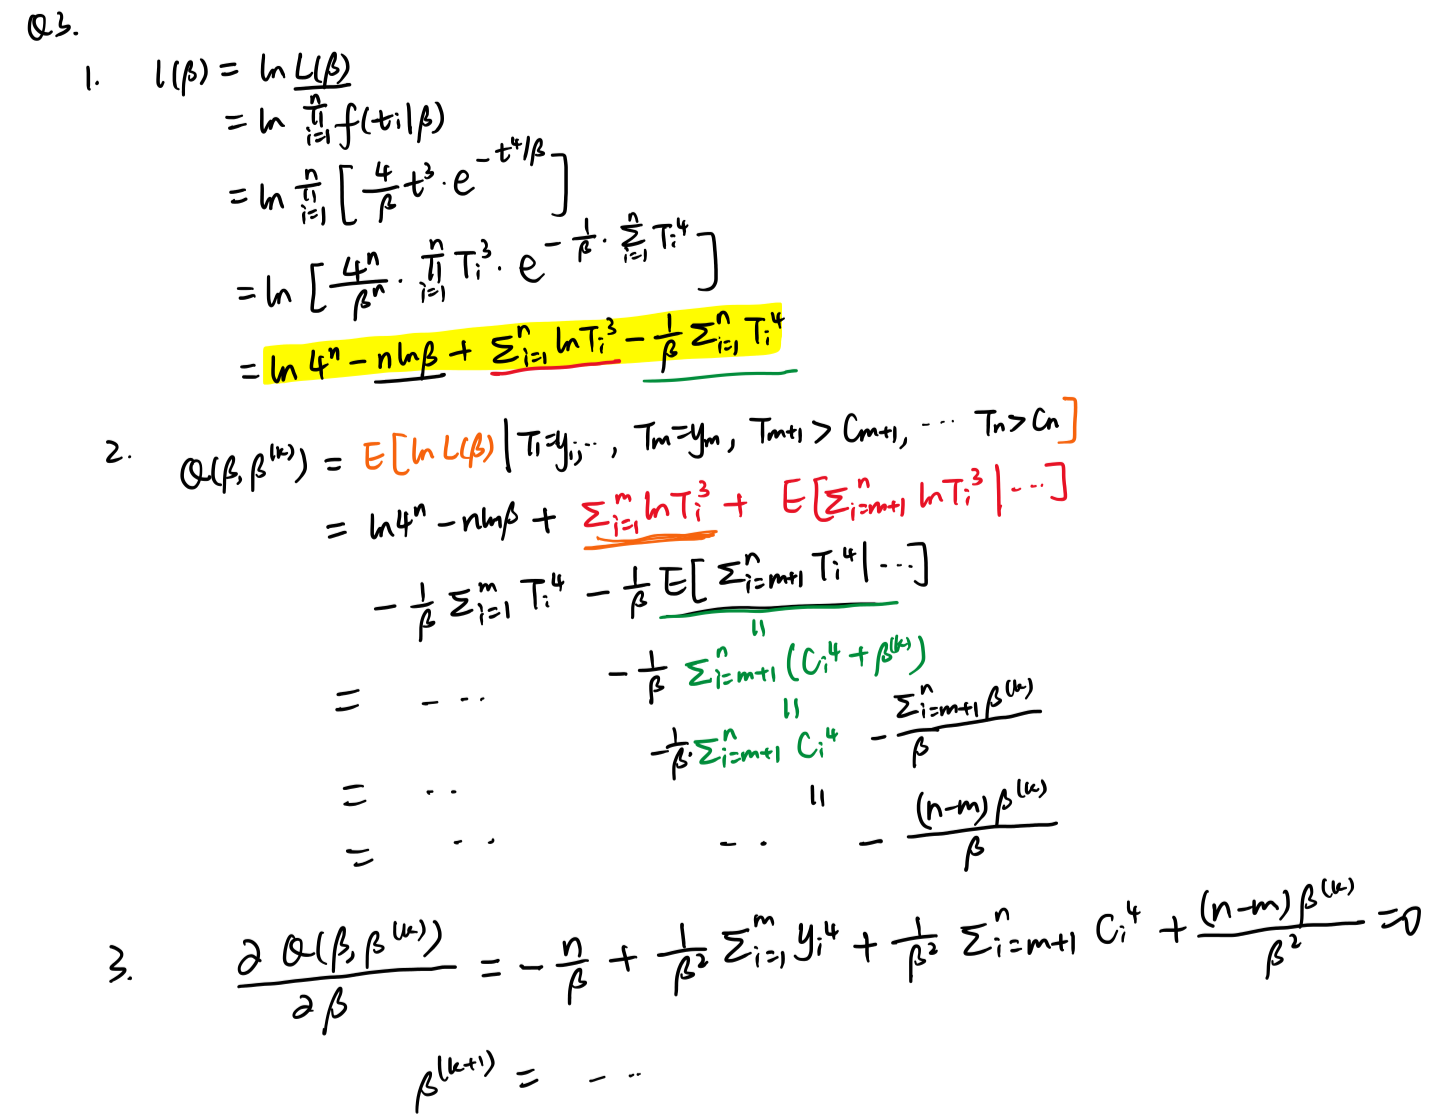 Q3.
1. l(β) = ln L(β)
= ln ∏_{i=1}^{n} f(t_i|β)
= ln ∏_{i=1}^{n} [ 4/β t³ · e^{-t⁴/β} ]
= ln [ 4ⁿ/βⁿ · ∏_{i=1}^{n} T_i³ · e^{-1/β · Σ_{i=1}^{n} T_i⁴} ]
= ln 4ⁿ - n ln β + Σ_{i=1}^{n} ln T_i³ - 1/β Σ_{i=1}^{n} T_i⁴
2. Q(β, β^{(k)}) = E[ln L(β) | T_1=y_1, ..., T_m=y_m, T_{m+1} > C_{m+1}, ... T_n > C_n]
= ln 4ⁿ - n ln β + Σ_{i=1}^{m} ln T_i³ + E[Σ_{i=m+1}^{n} ln T_i³ | ...]
- 1/β Σ_{i=1}^{m} T_i⁴ - 1/β E[Σ_{i=m+1}^{n} T_i⁴ | ...]
=
= ... - 1/β Σ_{i=m+1}^{n} (C_i⁴ + β^{(k)})
=
- 1/β · Σ_{i=m+1}^{n} C_i⁴ - Σ_{i=m+1}^{n} β^{(k)} / β
= .. =
= .. .. - (n-m) β^{(k)} / β
3. ∂Q(β, β^{(k)}) / ∂β = - n/β + 1/β² Σ_{i=1}^{m} y_i⁴ + 1/β² Σ_{i=m+1}^{n} C_i⁴ + (n-m) β^{(k)} / β² = 0
β^{(k+1)} = ...